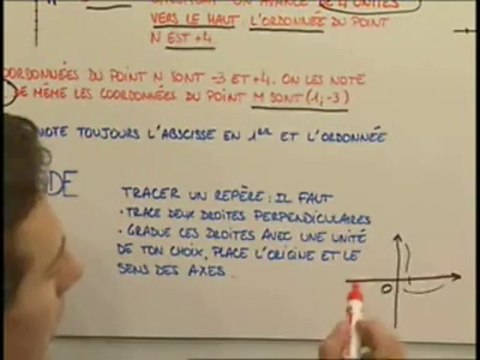 ON AVANCE DE 4 UNITÉS
VERS LE HAUT L'ORDONNÉE DU POINT
N EST +4
COORDONNÉES DU POINT N SONT -3 ET +4. ON LES NOTE
DE MÊME LES COORDONNÉES DU POINT M SONT (1;-3)
NOTE TOUJOURS L'ABSCISSE EN 1ER ET L'ORDONNÉE
DE
TRACER UN REPÈRE: IL FAUT
• TRACE DEUX DROITES PERPENDICULAIRES
• GRADUE CES DROITES AVEC UNE UNITÉ
DE TON CHOIX, PLACE L'ORIGINE ET LE
SENS DES AXES
O